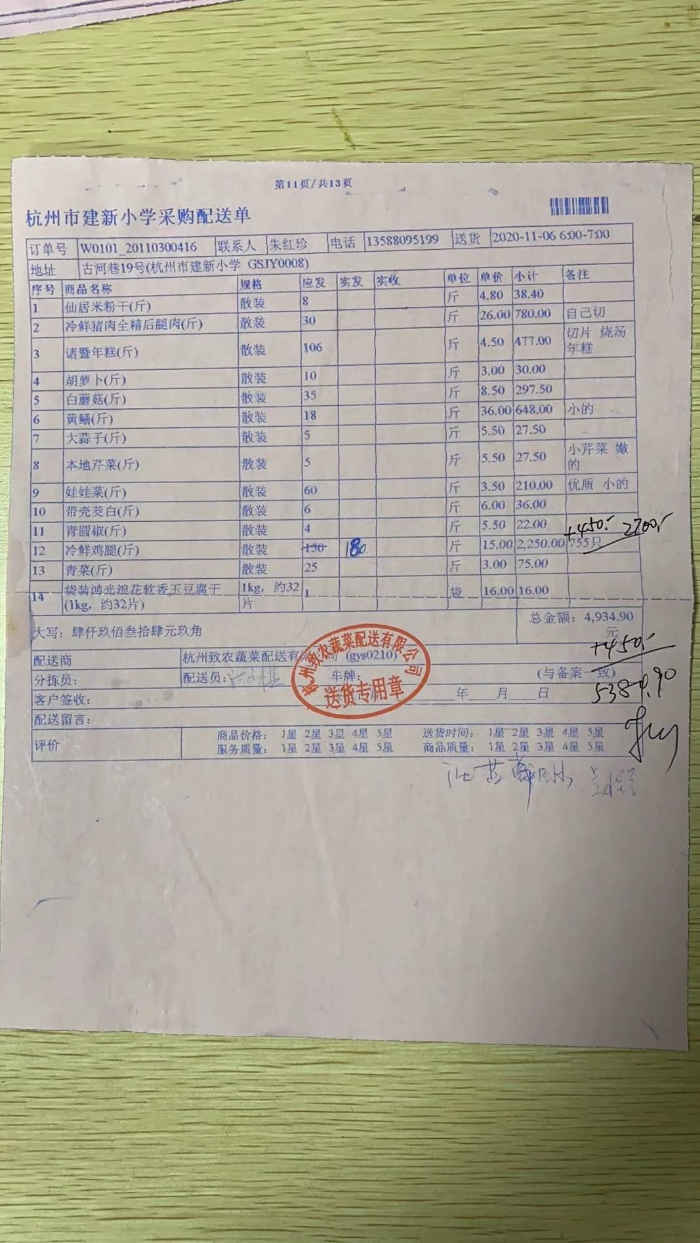 第11页/共13页
杭州市建新小学采购配送单
订单号 W0101_20110300416 联系人 朱红珍 电话 13588095199 送货 2020-11-06 6:00-7:00
地址 古河巷19号(杭州市建新小学 GSJY0008)
序号 商品名称 规格 应发 实发 实收 单位 单价 小计 备注
1 仙居米粉干(斤) 散装 8 斤 4.80 38.40
2 冷鲜猪肉全精后腿肉(斤) 散装 30 斤 26.00 780.00 自己切
3 诸暨年糕(斤) 散装 106 斤 4.50 477.00 切片 烧汤
年糕
4 胡萝卜(斤) 散装 10 斤 3.00 30.00
5 白蘑菇(斤) 散装 35 斤 8.50 297.50
6 黄鳝(斤) 散装 18 斤 36.00 648.00 小的
7 大蒜子(斤) 散装 5 斤 5.50 27.50
8 本地芹菜(斤) 散装 5 斤 5.50 27.50 小芹菜 嫩
的
9 娃娃菜(斤) 散装 60 斤 3.50 210.00 优质 小的
10 带壳茭白(斤) 散装 6 斤 6.00 36.00
11 青圆椒(斤) 散装 4 斤 5.50 22.00
+450.- 2700.-
12 冷鲜鸡腿(斤) 散装 150 180 斤 15.00 2,250.00 755只
13 青菜(斤) 散装 25 斤 3.00 75.00
14 袋装鸿光浪花软香玉豆腐干 1kg，约32 1 袋 16.00 16.00
(1kg，约32片) 片
总金额：4,934.90
大写：肆仟玖佰叁拾肆元玖角 元
+450.-
配送商 杭州致农蔬菜配送有限公司 (gys0210)
分拣员： 配送员： 车牌： (与备案一致)
5384.90
客户签收： 年 月 日
配送留言：
评价 商品价格： 1星 2星 3星 4星 5星 送货时间： 1星 2星 3星 4星 5星
服务质量： 1星 2星 3星 4星 5星 商品质量： 1星 2星 3星 4星 5星
杭州致农蔬菜配送有限公司
送货专用章